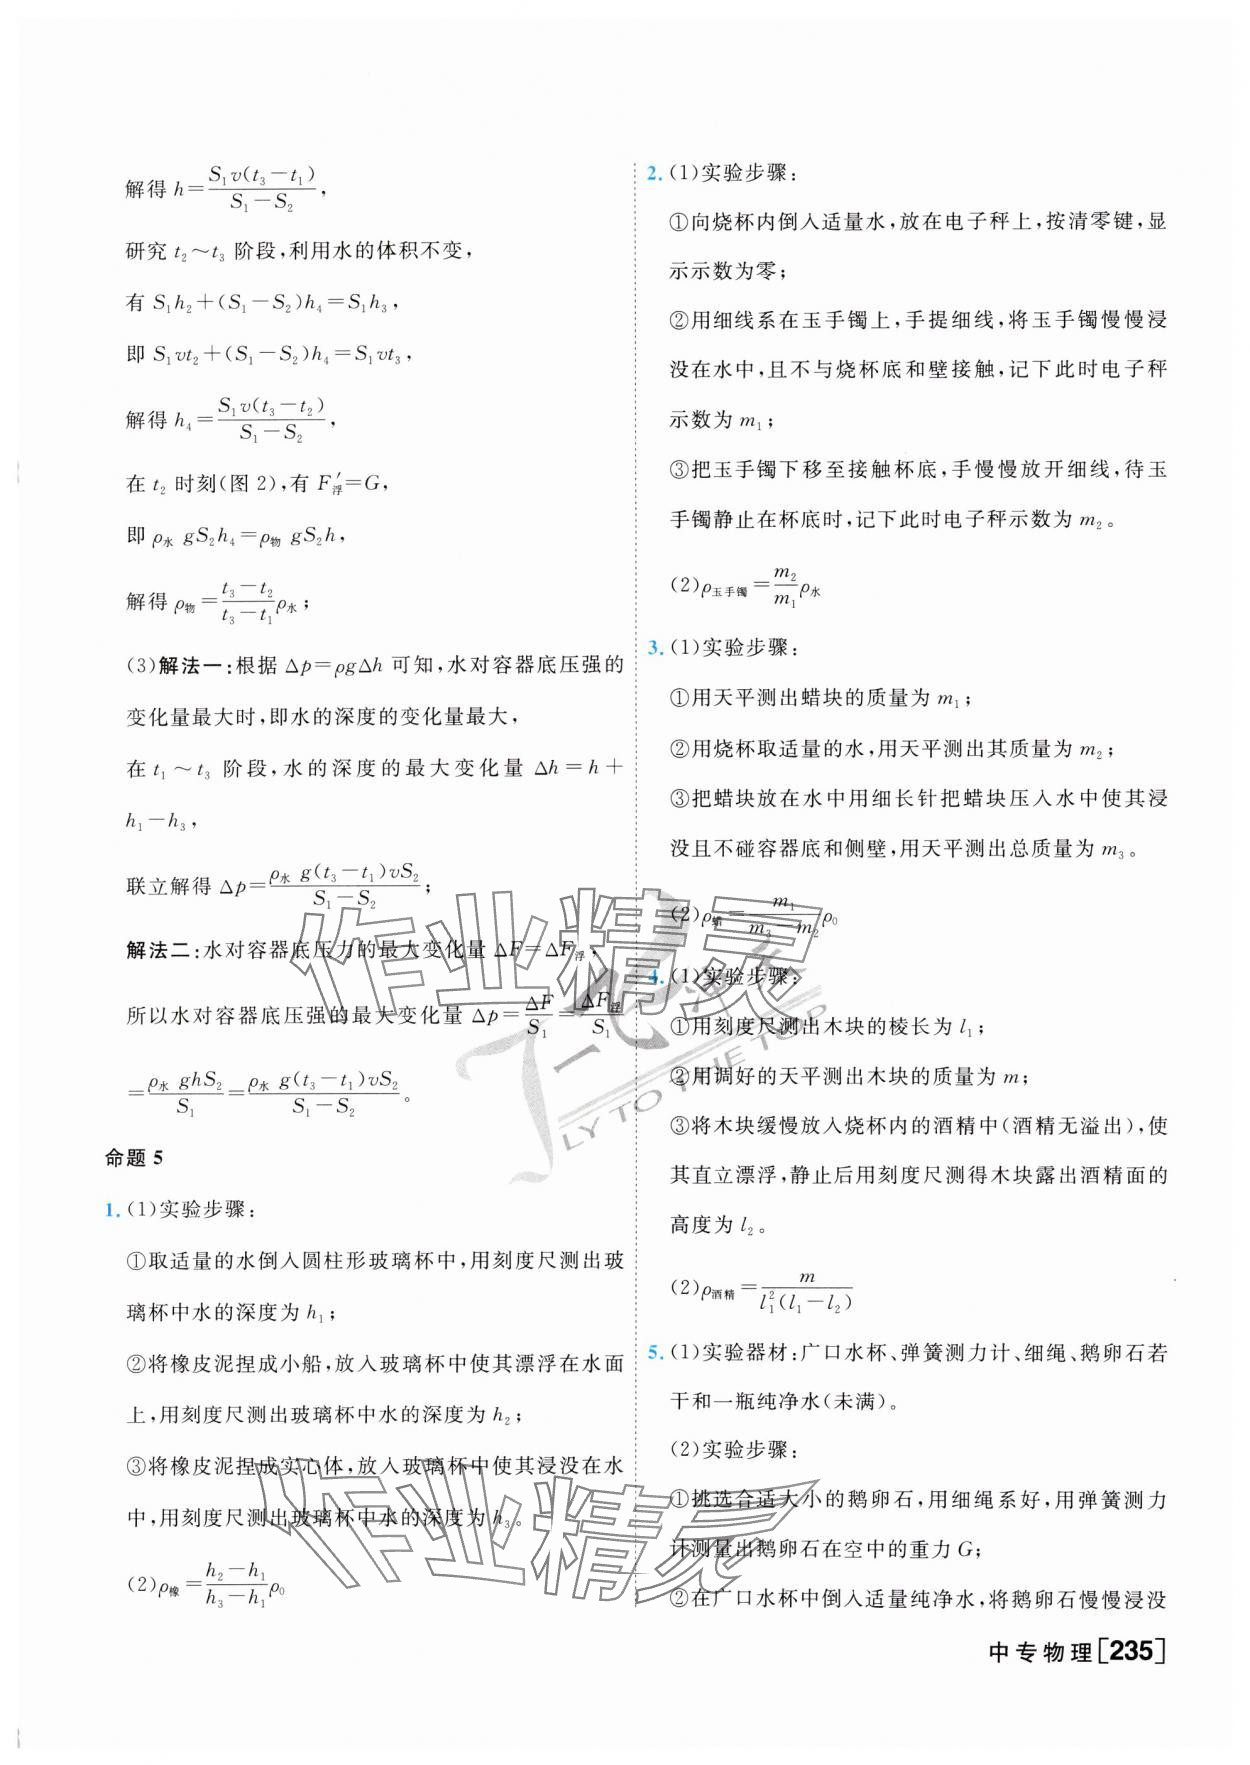 解得 h=S₁v(t₃−t₁)/(S₁−S₂),
研究 t₂～t₃ 阶段,利用水的体积不变,
有 S₁h₂+(S₁−S₂)h₄=S₁h₃,
即 S₁vt₂+(S₁−S₂)h₄=S₁vt₃,
解得 h₄=S₁v(t₃−t₂)/(S₁−S₂),
在 t₂ 时刻(图 2),有 F′浮=G,
即 ρ水 gS₂h₄=ρ物 gS₂h,
解得 ρ物=(t₃−t₂)/(t₃−t₁)ρ水;
(3)解法一:根据 Δp=ρgΔh 可知,水对容器底压强的
变化量最大时,即水的深度的变化量最大,
在 t₁～t₃ 阶段,水的深度的最大变化量 Δh=h+
h₁−h₃,
联立解得 Δp=ρ水 g(t₃−t₁)vS₂/(S₁−S₂);
解法二:水对容器底压力的最大变化量 ΔF=ΔF浮,
所以水对容器底压强的最大变化量 Δp=ΔF/S₁=ΔF浮/S₁
=ρ水 ghS₂/S₁=ρ水 g(t₃−t₁)vS₂/(S₁−S₂)。
命题 5
1. (1)实验步骤:
①取适量的水倒入圆柱形玻璃杯中,用刻度尺测出玻
璃杯中水的深度为 h₁;
②将橡皮泥捏成小船,放入玻璃杯中使其漂浮在水面
上,用刻度尺测出玻璃杯中水的深度为 h₂;
③将橡皮泥捏成实心体,放入玻璃杯中使其浸没在水
中,用刻度尺测出玻璃杯中水的深度为 h₃。
(2)ρ橡=(h₂−h₁)/(h₃−h₁)ρ₀
2. (1)实验步骤:
①向烧杯内倒入适量水,放在电子秤上,按清零键,显
示示数为零;
②用细线系在玉手镯上,手提细线,将玉手镯慢慢浸
没在水中,且不与烧杯底和壁接触,记下此时电子秤
示数为 m₁;
③把玉手镯下移至接触杯底,手慢慢放开细线,待玉
手镯静止在杯底时,记下此时电子秤示数为 m₂。
(2)ρ玉手镯=m₂/m₁ρ水
3. (1)实验步骤:
①用天平测出蜡块的质量为 m₁;
②用烧杯取适量的水,用天平测出其质量为 m₂;
③把蜡块放在水中用细长针把蜡块压入水中使其浸
没且不碰容器底和侧壁,用天平测出总质量为 m₃。
(2)ρ蜡=m₁/(m₃−m₂)ρ₀
4. (1)实验步骤:
①用刻度尺测出木块的棱长为 l₁;
②用调好的天平测出木块的质量为 m;
③将木块缓慢放入烧杯内的酒精中(酒精无溢出),使
其直立漂浮,静止后用刻度尺测得木块露出酒精面的
高度为 l₂。
(2)ρ酒精=m/(l₁²(l₁−l₂))
5. (1)实验器材:广口水杯、弹簧测力计、细绳、鹅卵石若
干和一瓶纯净水(未满)。
(2)实验步骤:
①挑选合适大小的鹅卵石,用细绳系好,用弹簧测力
计测量出鹅卵石在空中的重力 G;
②在广口水杯中倒入适量纯净水,将鹅卵石慢慢浸没
中专物理[235]
作业精灵
作业精灵